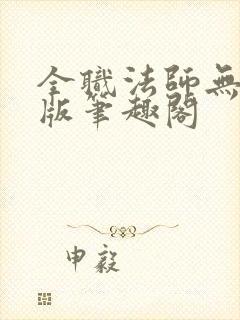 全職法師無
版筆趣閣
申毅